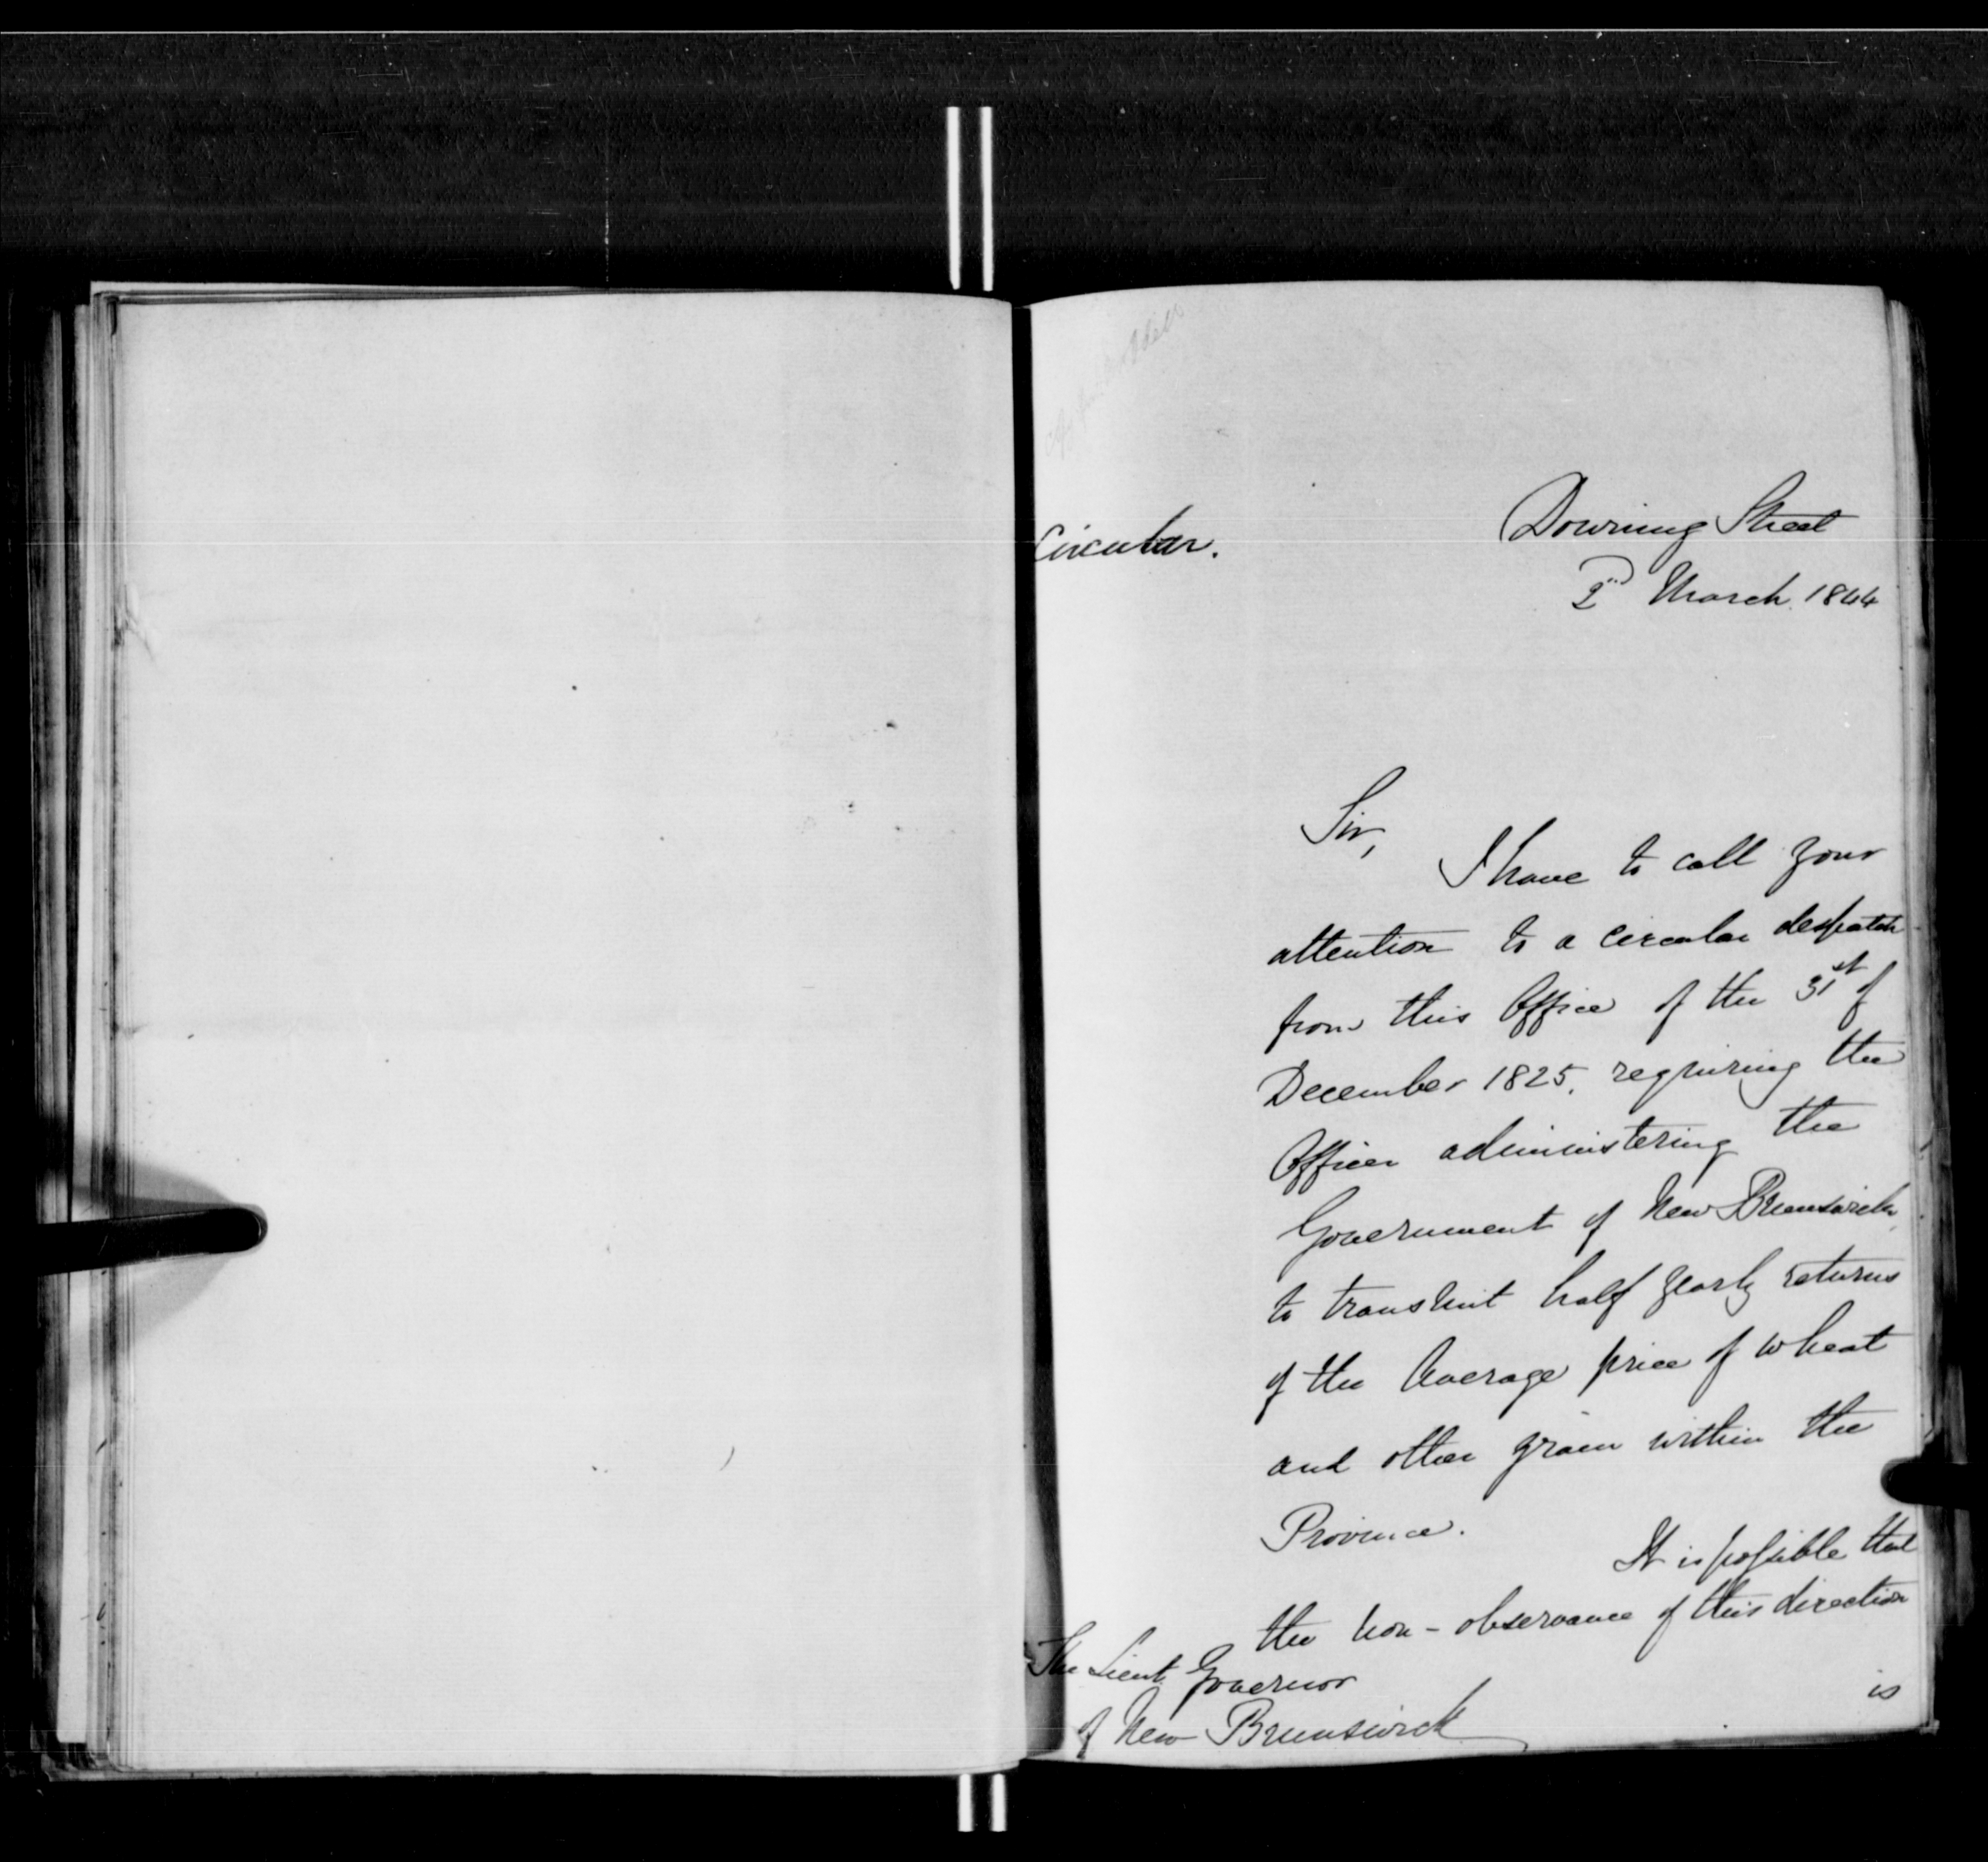 Circular.
Downing Street
2nd March. 1844
Sir,
I have to call your
attention to a circular despatch
from this Office of the 31st of
December 1825, requiring the
Officer administering the
Government of New Brunswick,
to transmit half yearly returns
of the Average price of wheat
and other grain within the
Province.
It is possible that
the non-observance of this direction
is
The Lieut Governor
of New Brunswick